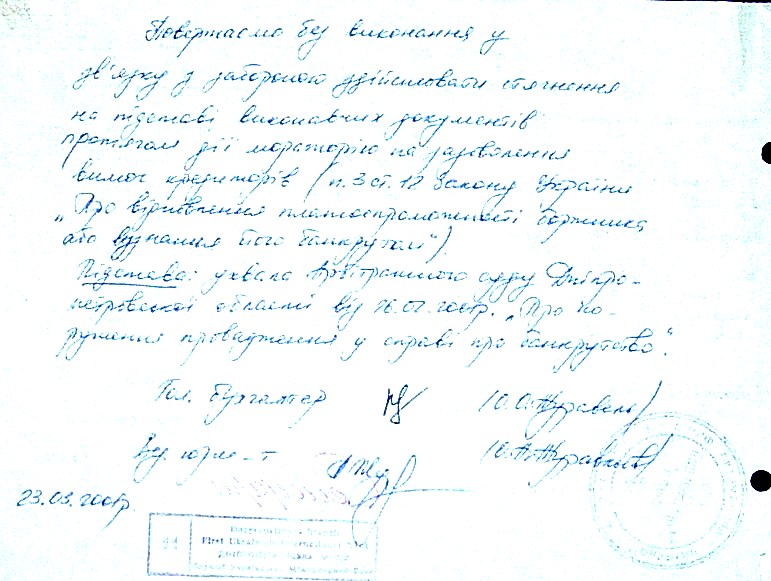 Повертаємо без виконання у
зв'язку з забороною здійснювати стягнення
на підставі виконавчих документів
протягом дії мораторію на задоволення
вимог кредиторів (п.3 ст.12 Закону України
„Про відновлення платоспроможності боржника
або визнання його банкрутом“)
Підстава: ухвала Арбітражного суду Дніпро-
петровської області від 16.02.2001р. „Про по-
рушення провадження у справі про банкрутство“.
Гол. бухгалтер (О.О.Журавель)
Вед. юрис-т
23.03.2001р
First Ukrainian International Bank